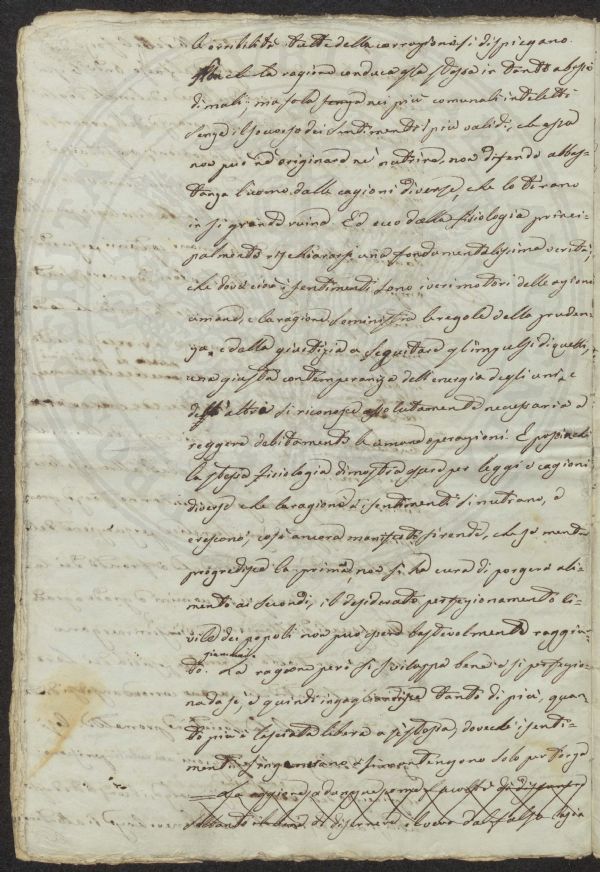 le orribilità tutte della corruzione si dispiegano.
Non che la ragione conduca per se stessa in tanto abisso
di mali; ma sola nei più comunali intelletti
senza il soccorso dei sentimenti più validi, che essa
non può nè originare nè nutrire, non difende abbas-
tanza l'uomo dalle cagioni diverse, che lo tirano
in sì grande ruina. Ed ecco dalla fisiologia princi-
palmente rischiararsi una fondamentalissima verità,
che dove cioè i sentimenti sono i veri motori delle azioni
umane, e la ragione somministra le regole della pruden-
za, e della giustizia a seguitare gl'impulsi di quelli,
una giusta contemperanza dell'energia degli uni, e
dell'altra si riconosce assolutamente necessaria a
reggere debitamente le umane operazioni. E poichè
la stessa fisiologia dimostra essere per leggi e cagioni
diverse che la ragione e i sentimenti si nutrano, e
crescono; così ancora manifesto si rende, che se mentre
progredisce la prima, non si ha cura di porgere ali-
mento ai secondi, il desiderato perfezionamento ci-
vile dei popoli non può essere bastevolmente raggiun-
to. La ragione però si sviluppa bene e si perfezio-
na da se, e quindi ingagliardisce tanto di più, quan-
to più è lasciata libera a se stessa, dovechè i senti-
menti si ingenerano e si mantengono solo per forza
soltanto di discernere il vero dal falso